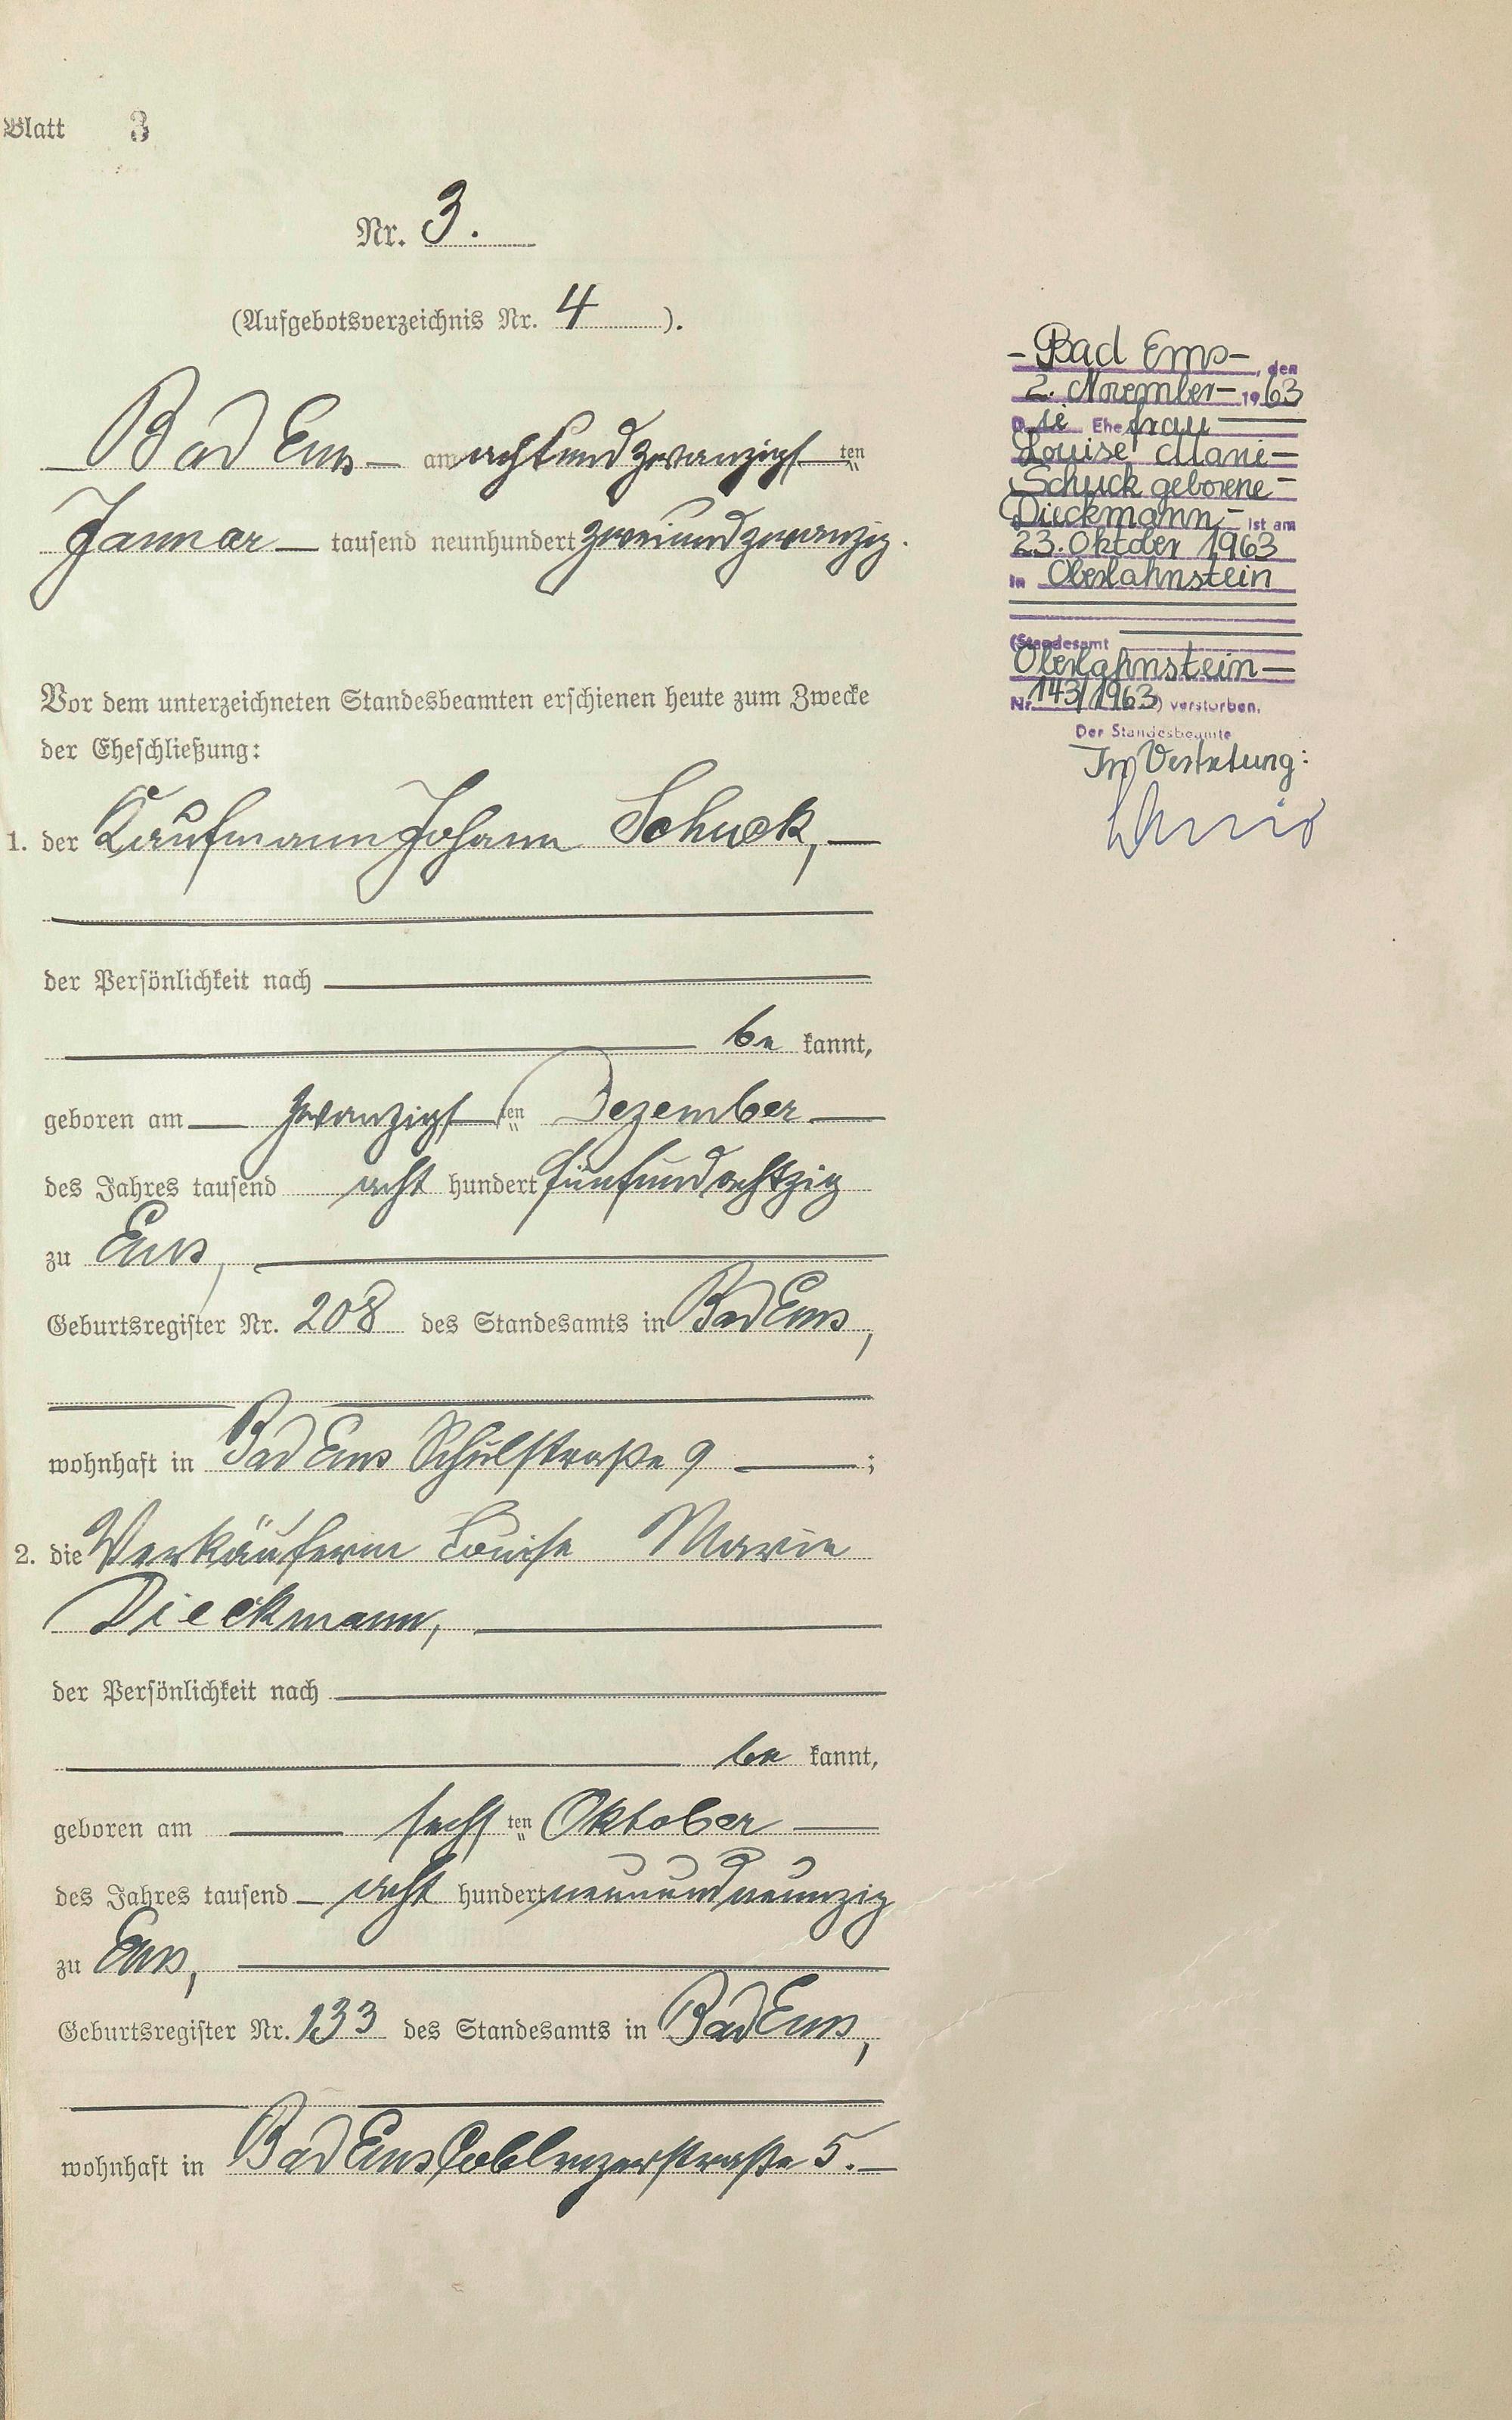 Blatt 3
Nr. 3.
(Aufgebotsverzeichnis Nr. 4 ).
Bad Ems — am achtundzwanzigsten
Januar — tausend neunhundert zweiundzwanzig.
Vor dem unterzeichneten Standesbeamten erschienen heute zum Zwecke
der Eheschließung:
1. der Kaufmann Johann Schuck, —
der Persönlichkeit nach
be kannt,
geboren am — zwanzigsten Dezember —
des Jahres tausend acht hundert fünfundachtzig
zu Ems,
Geburtsregister Nr. 208 des Standesamts in Bad Ems,
wohnhaft in Bad Ems Schulstraße 9 — ;
2. die Verkäuferin Louise Marie
Dieckmann,
der Persönlichkeit nach
be kannt,
geboren am — sechsten Oktober —
des Jahres tausend — acht hundert neunundneunzig
zu Ems,
Geburtsregister Nr. 133 des Standesamts in Bad Ems,
wohnhaft in Bad Ems Coblenzerstraße 5. —
- Bad Ems -, den
2. November - 1963
Die Ehefrau
Louise Marie -
Schuck geborene -
Dieckmann, - ist am
23. Oktober 1963
in Oberlahnstein
(Standesamt
Oberlahnstein -
Nr. 143/1963) verstorben.
Der Standesbeamte
In Vertretung: